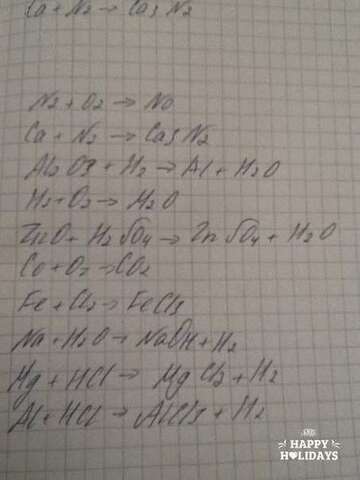 Ca + N2 → Ca3 N2
N2 + O2 → NO
Ca + N2 → Ca3 N2
Al2 O3 + H2 → Al + H2O
H2 + O2 → H2O
ZnO + H2 SO4 → Zn SO4 + H2O
Co + O2 → CO2
Fe + Cl2 → FeCl3
Na + H2O → NaOH + H2
Mg + HCl → Mg Cl2 + H2
Al + HCl → AlCl3 + H2
HAPPY
HOLIDAYS